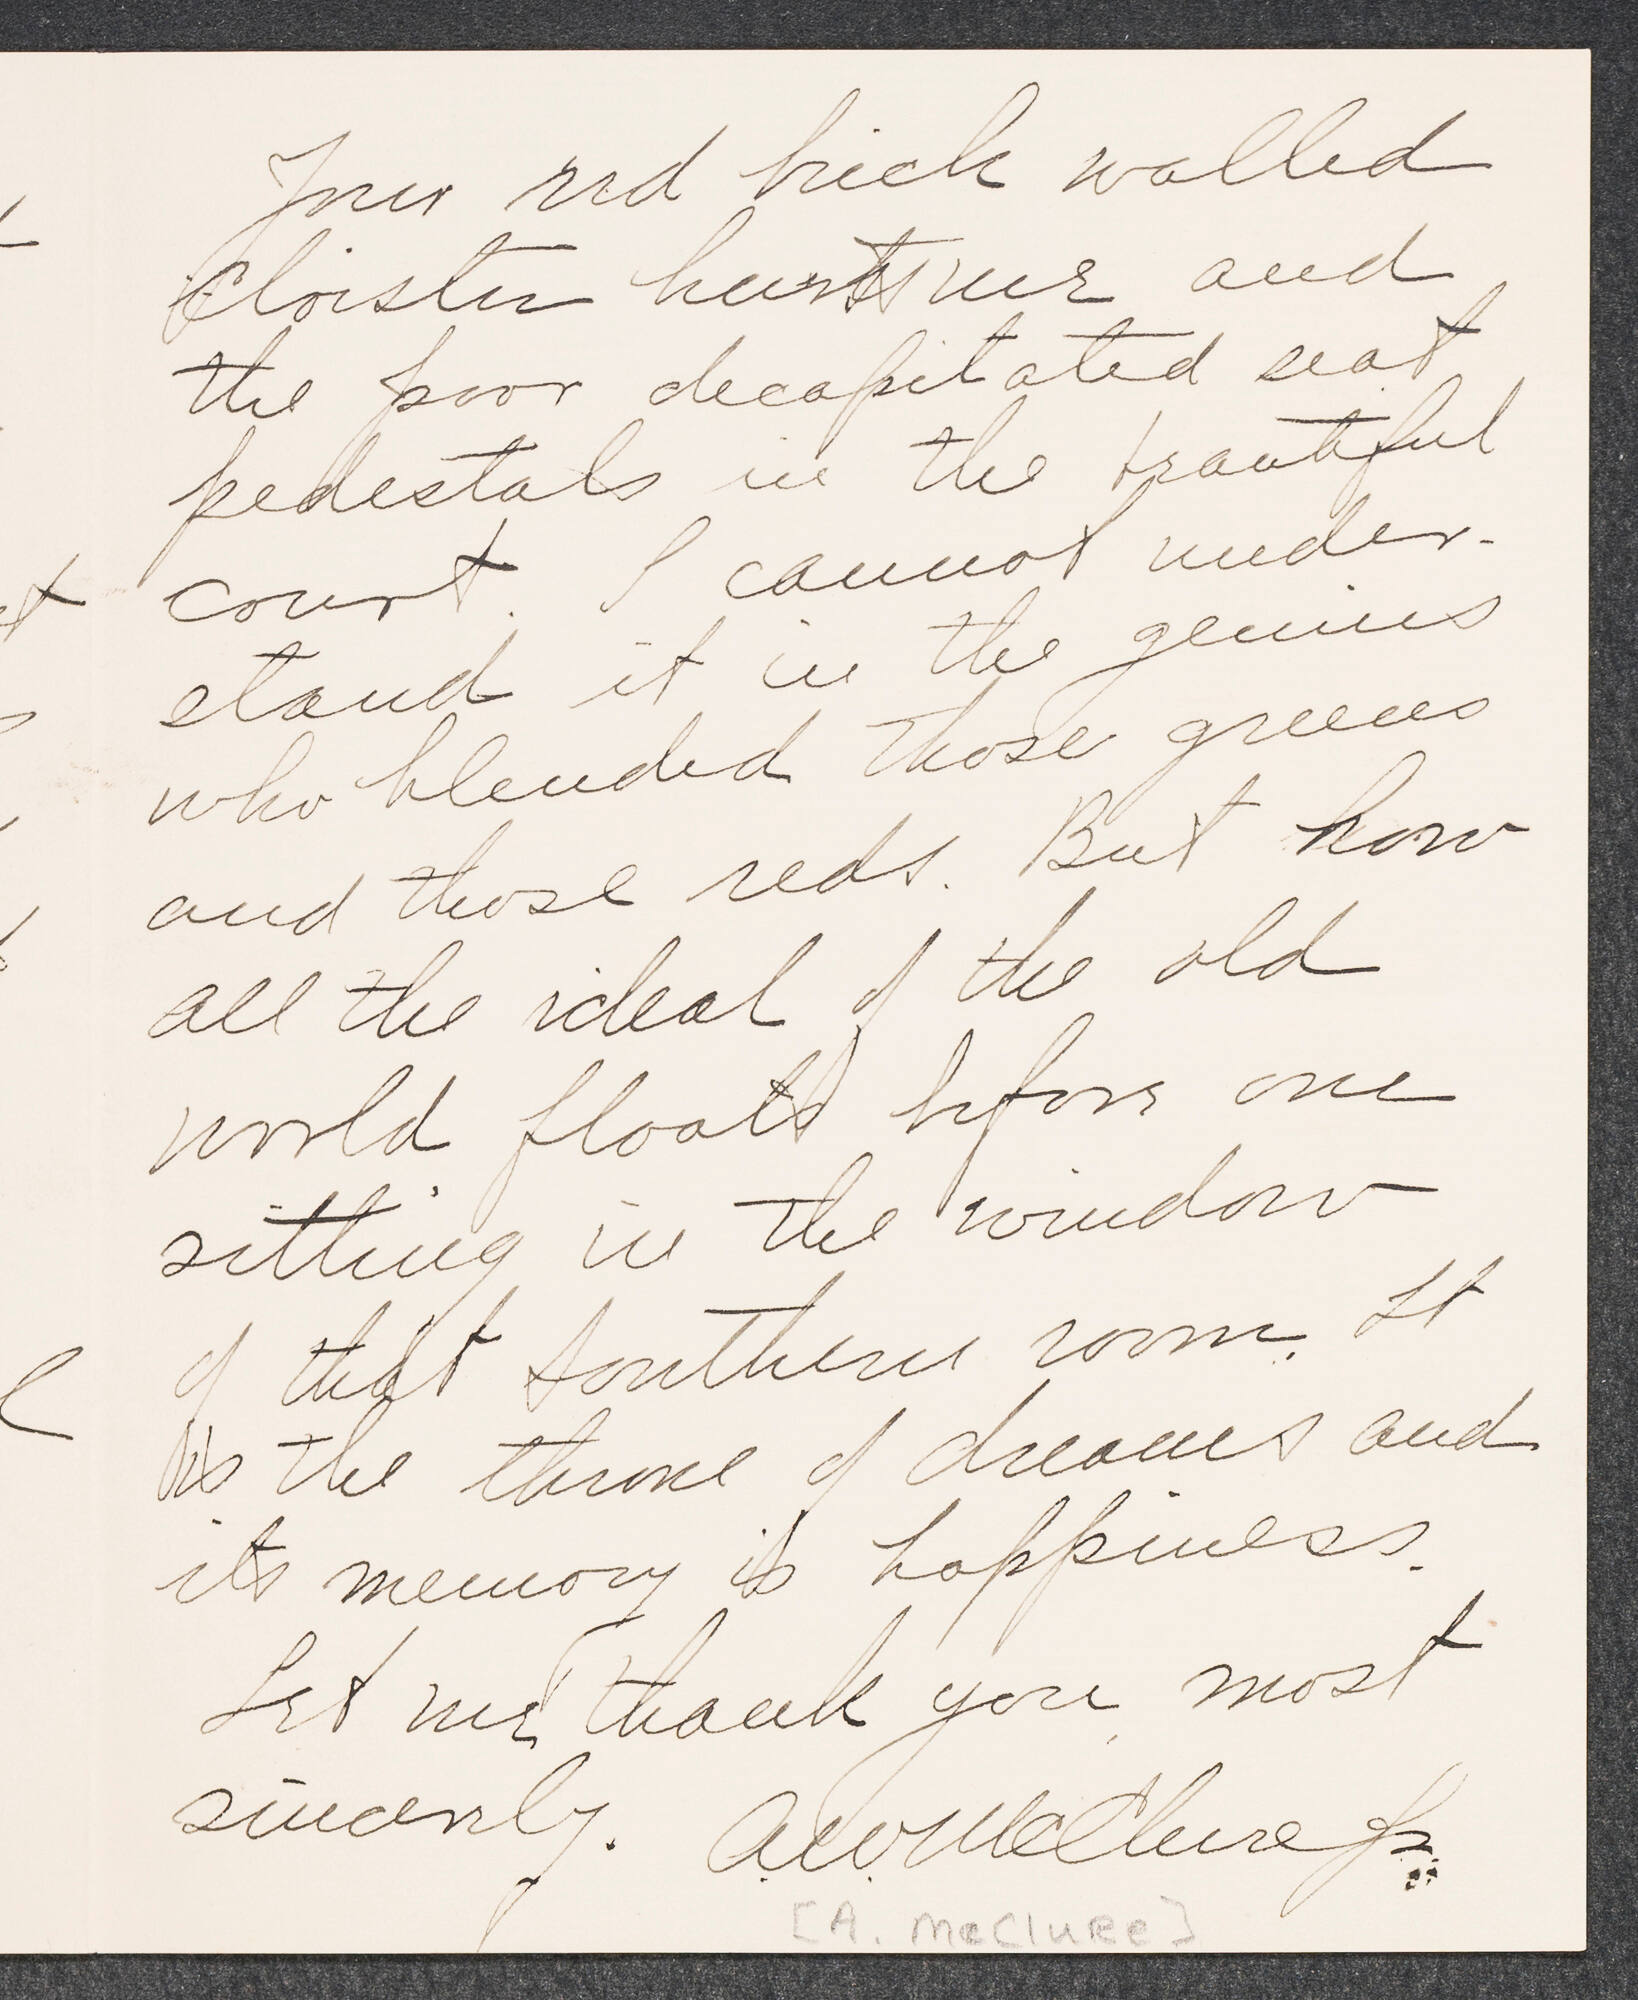 Your red brick walled
cloister hurts me and
the poor decapitated seat
pedestals in the beautiful
court. I cannot under-
stand it in the genius
who blended those greens
and those reds. But how
all the ideal of the old
world floats before one
sitting in the window
of that Southern room. It
is the throne of dreams and
its memory is happiness.
Let me thank you most
sincerely. A.W. McClure Jr.
[A. McClure]